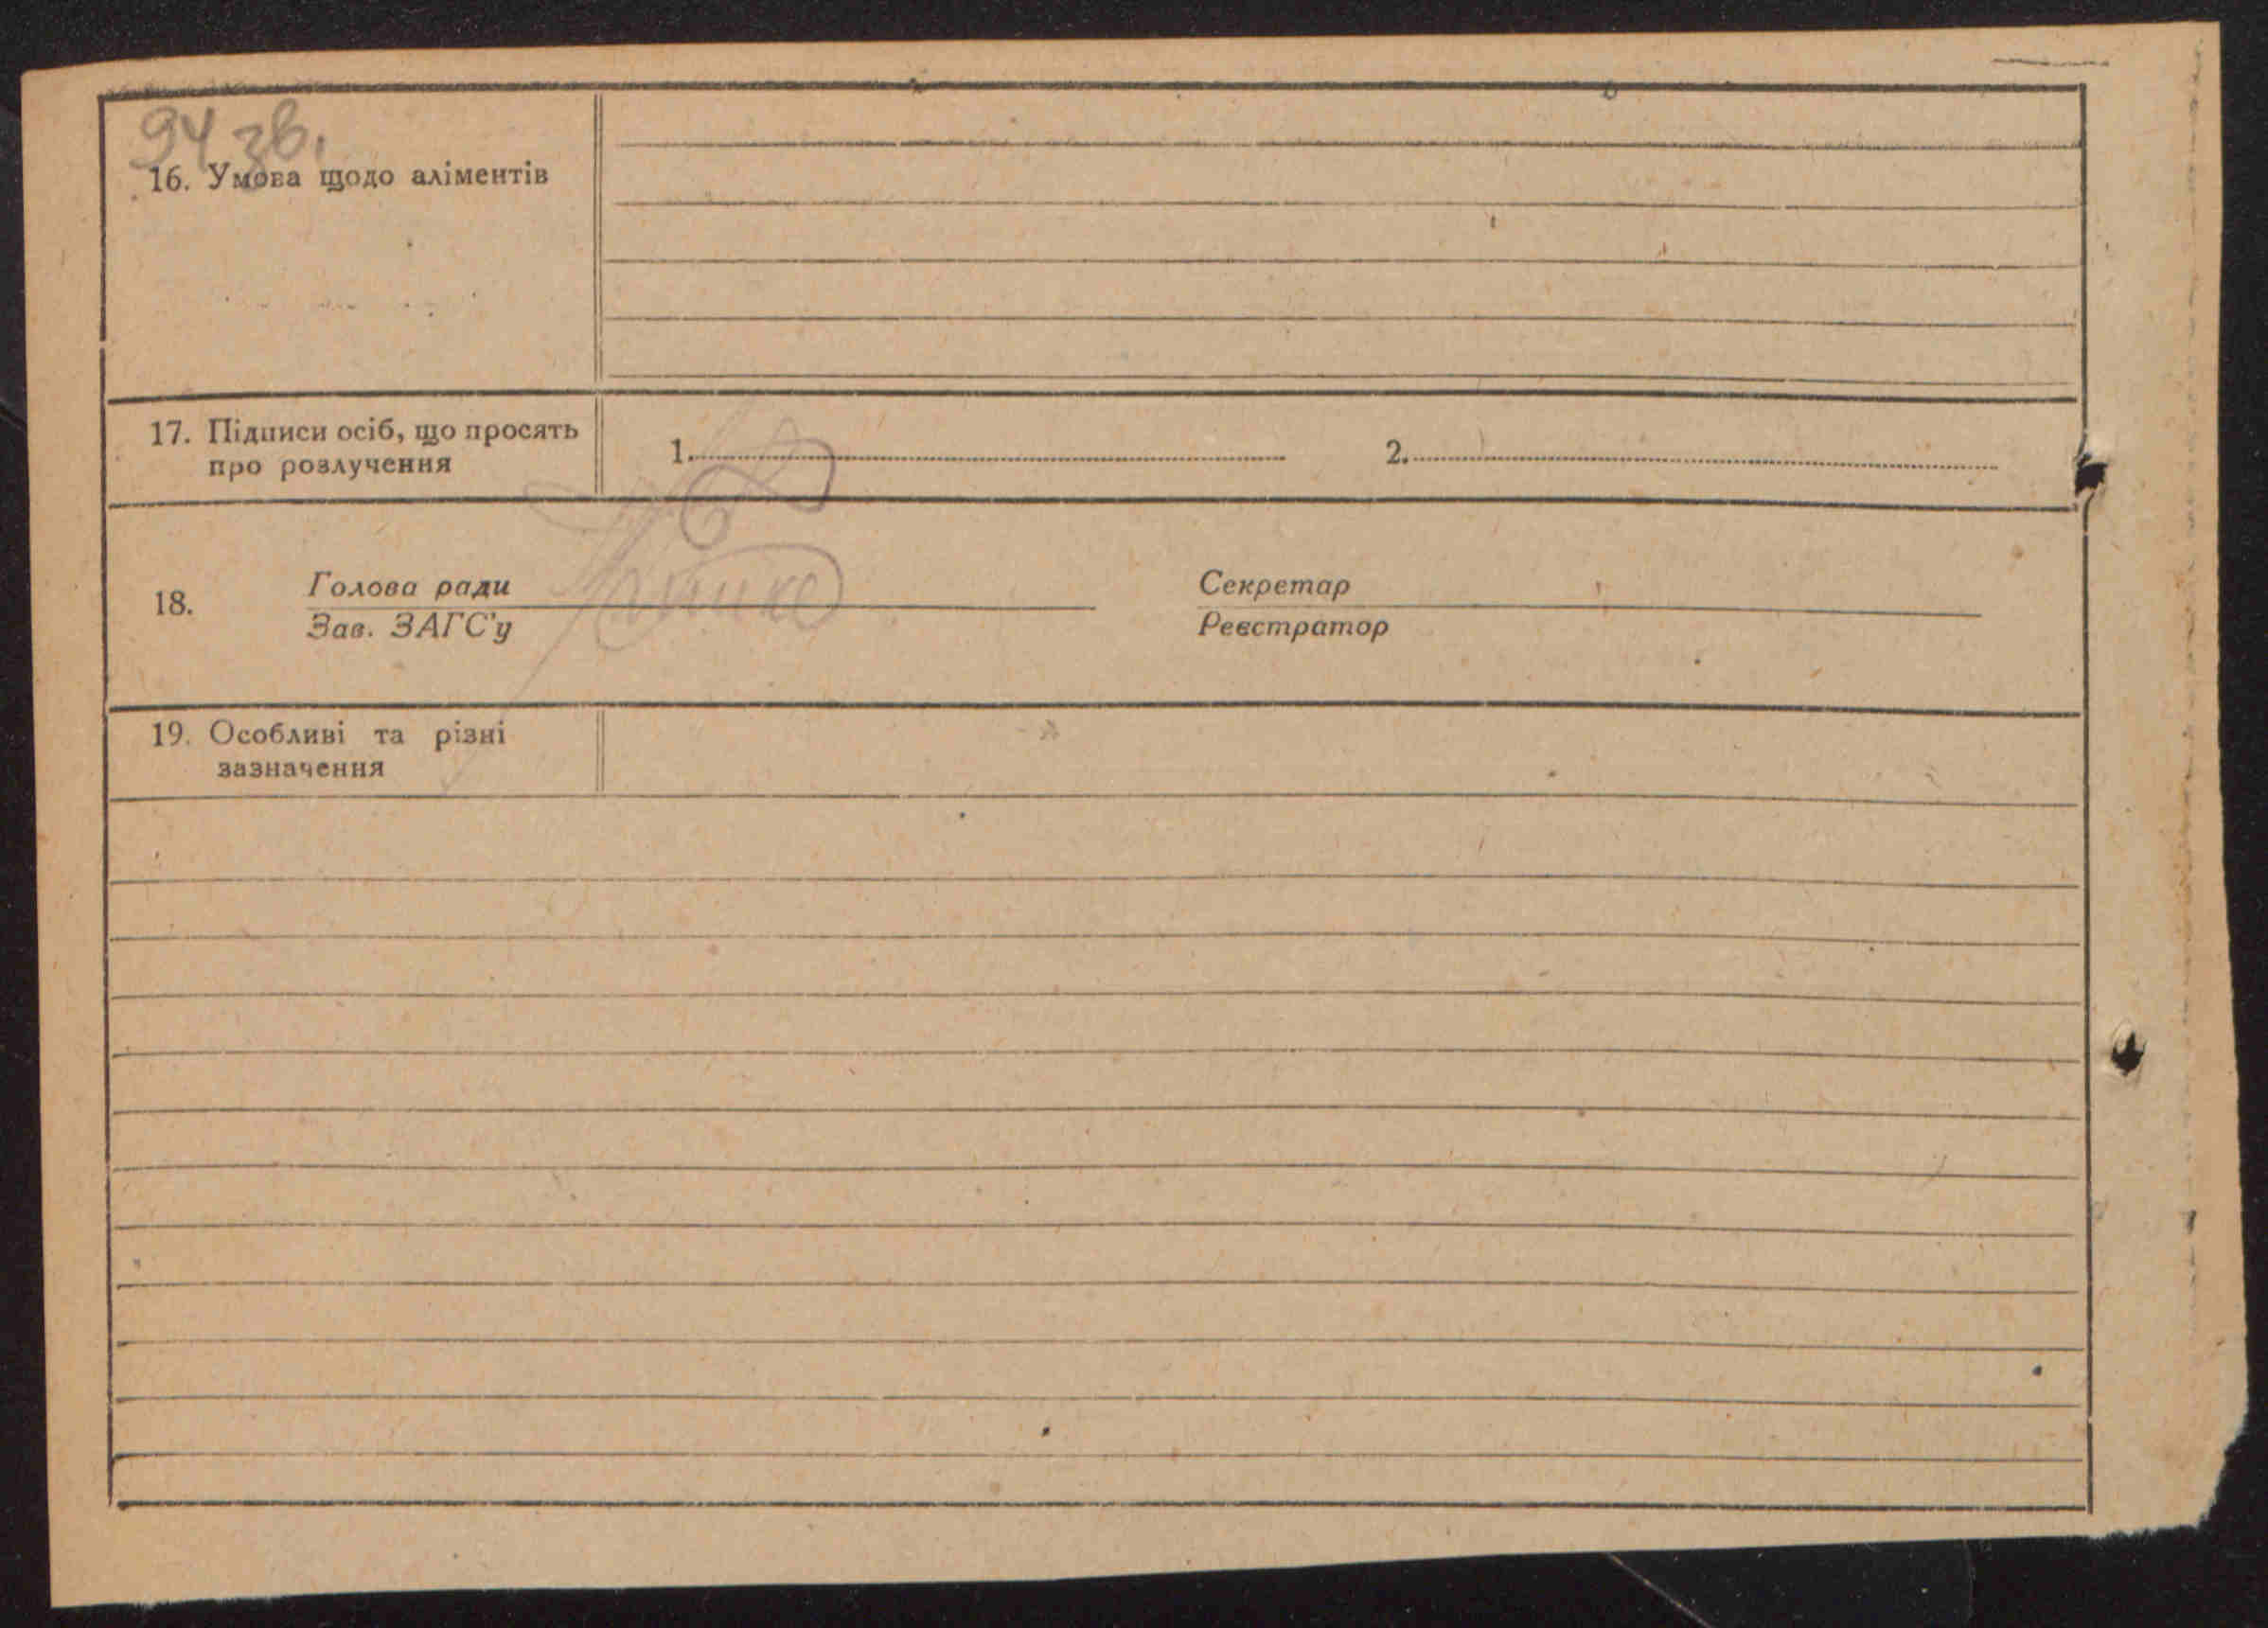 94 зв.
16. Умова щодо аліментів
17. Підписи осіб, що просять
про розлучення
1.
2.
18.
Голова ради
Зав. ЗАГС'у
Секретар
Реєстратор
19. Особливі та різні
зазначення